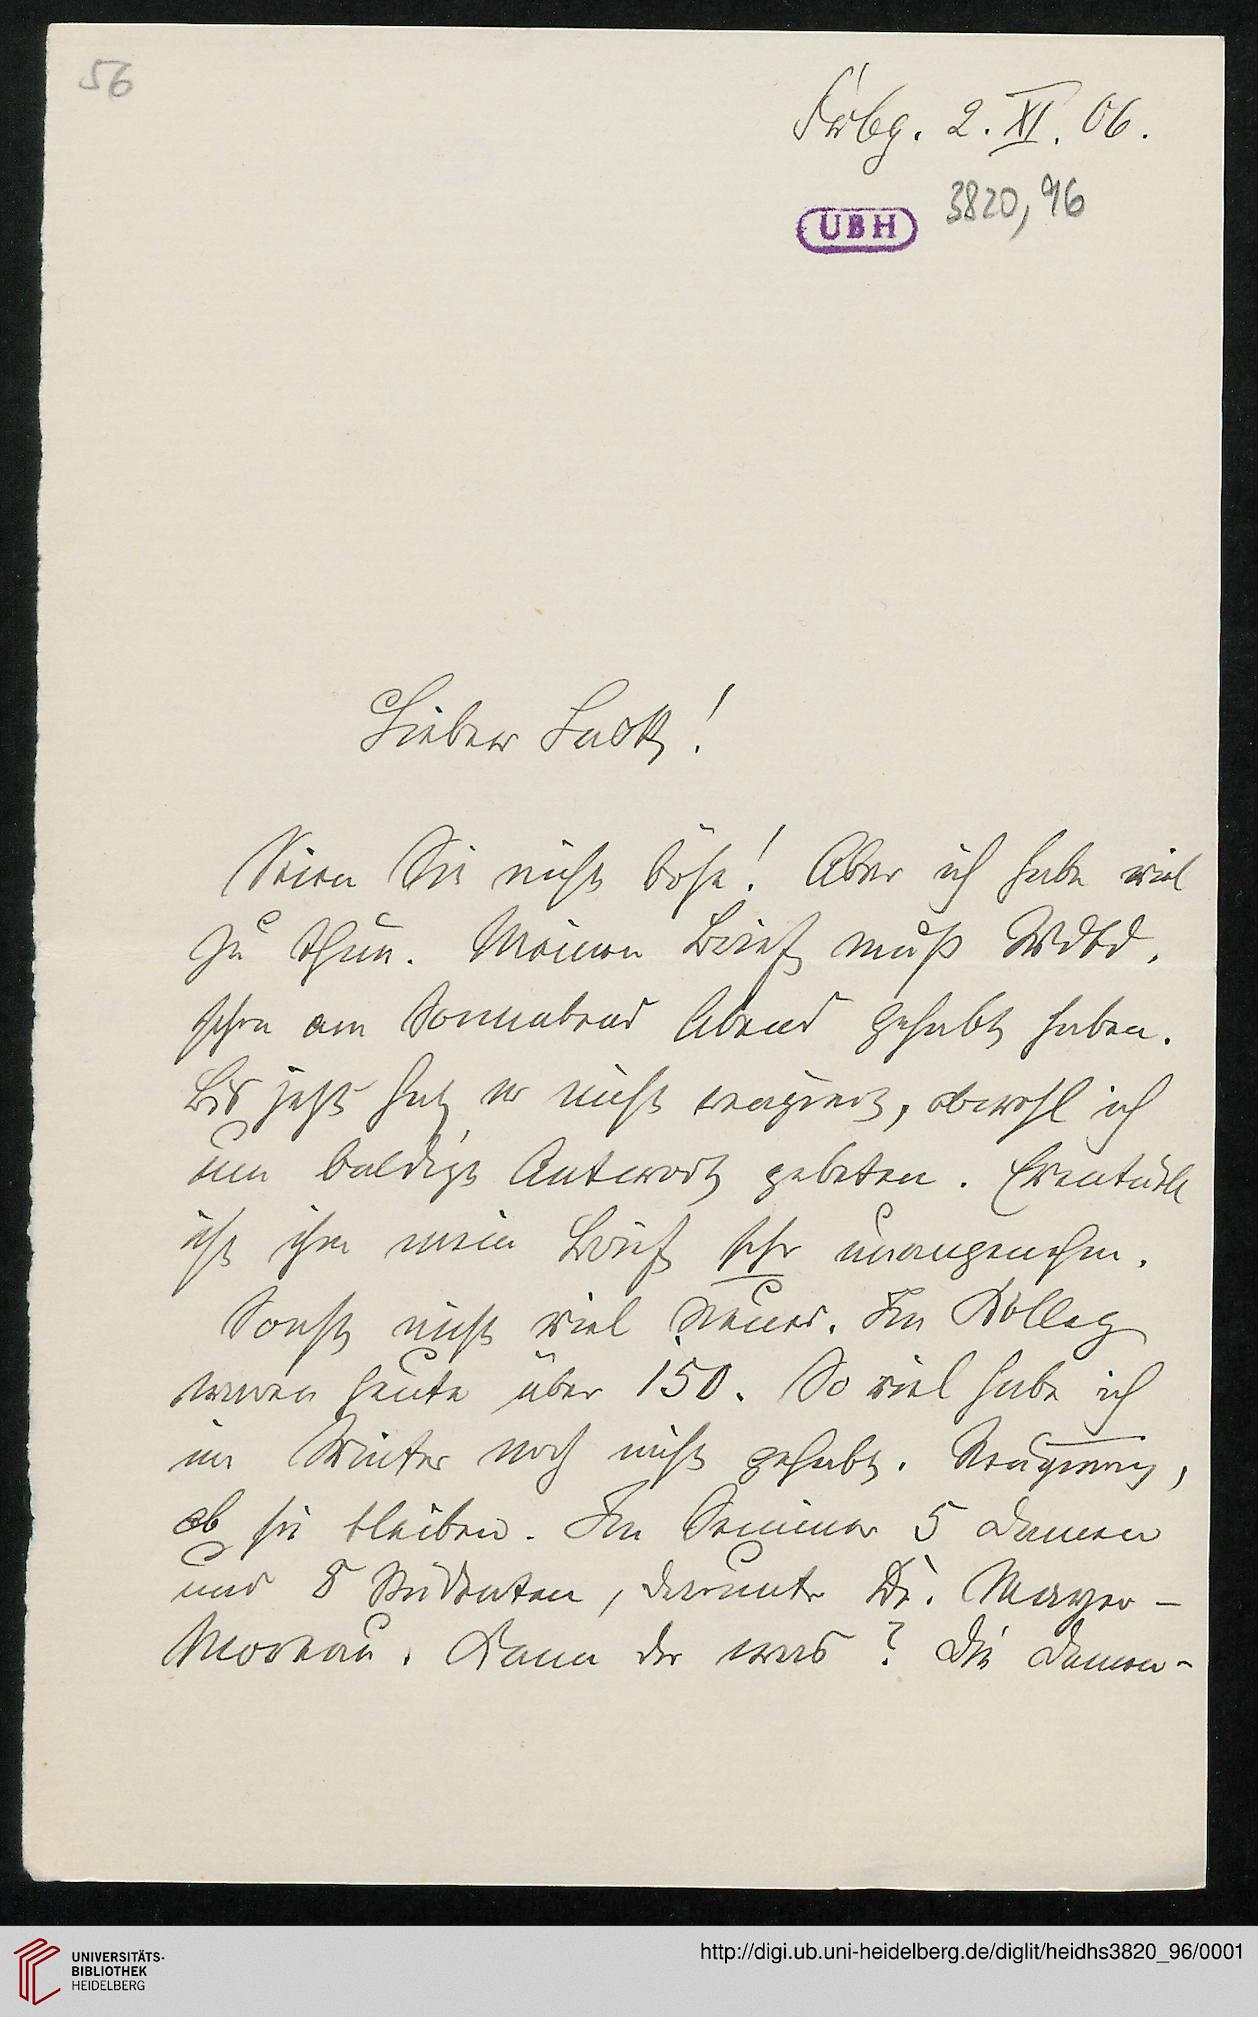 56
Frbg. 2. XI. 06.
UBH 3820,96
Lieber Lask!
Seien Sie nicht böse! Aber ich habe viel
zu thun. Meinen Brief muß Wdbd.
schon am Sonnabend Abend gehabt haben.
Bis jetzt hat er nicht reagiert, obwohl ich
um baldige Antwort gebeten. Eventuell
ist ihm mein Brief sehr unangenehm.
Sonst nicht viel Neues. Im Kolleg
waren heute über 150. So viel habe ich
im Winter noch nicht gehabt. Neugierig,
ob sie bleiben. Im Seminar 5 Damen
und 8 Studenten, darunter Dr. Mayer-
Moreau. Kann der was? Die Damen-
UNIVERSITÄTS-
BIBLIOTHEK
HEIDELBERG
http://digi.ub.uni-heidelberg.de/diglit/heidhs3820_96/0001